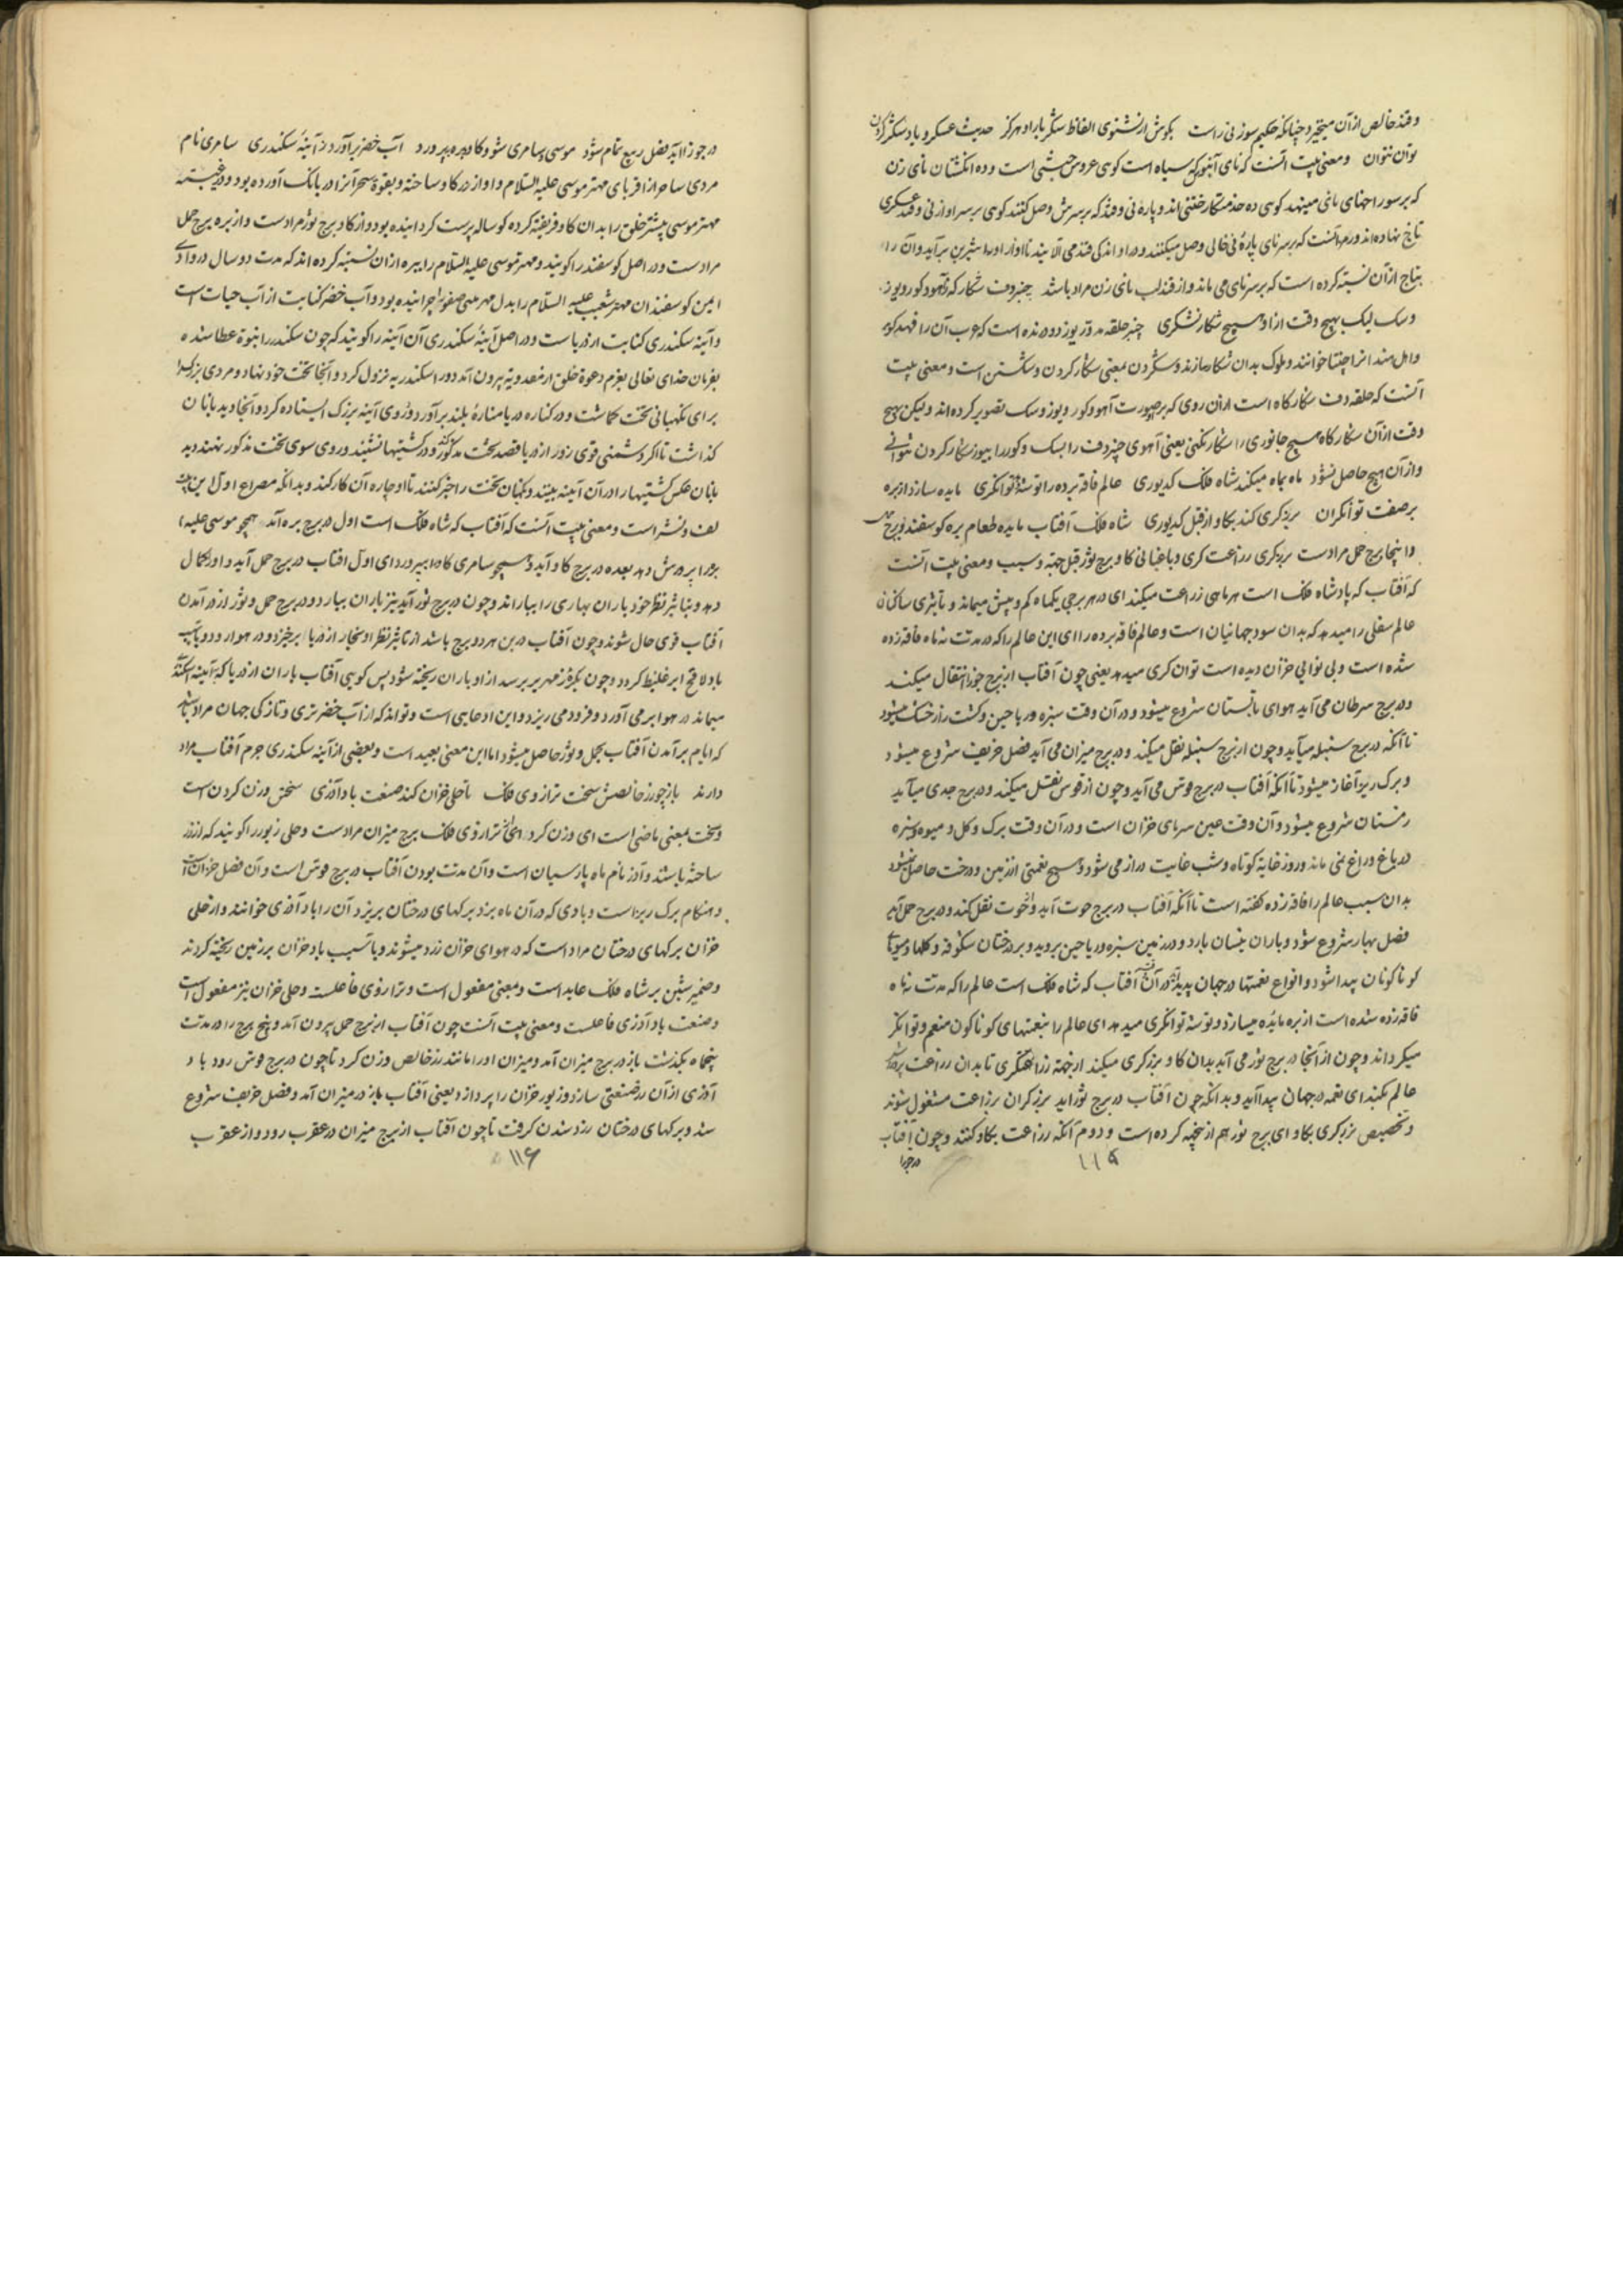 و قند خالص از آن میخیزد چنانکه حکیم سوزنی راست بگوش ار نشنوی الفاظ شکربار او هرگز حدیث عسکر و یاد شکر کردن
توان نتوان و معنی بیت آنست که نای آبنوس که سیاه است گویی عروس حبشی است و ده انگشتان نای زن
که بر سوراخهای نای مینهد گویی ده خدمتکار ختنی اند و پاره نی و قند که بر سرش وصل کنند گویی بر سر او از نی و قند عسکری
تاج نهاده اند و رسم آنست که بر سر نای پارهٔ نی خالی وصل میکنند و در او اندکی قند می آلایند تا آواز او را شیرین برآید و آن را
بتاج از آن نسبت کرده است که بر سر نای می ماند و از قند لب نای زن مراد باشد چنبر دف شکار که ز آهو و گور و یوز
و سگ لیک بهیچ وقت ازو هیچ شکار نشکری چنبر حلقه مدور یوز دونده است که عرب آن را فهد گوید
و اهل هند آنرا چیتا خوانند و ملوک بدان شکار سازند و شکردن بمعنی شکار کردن و شکستن است و معنی بیت
آنست که حلقه دف شکارگاه است از آن روی که بر صورت آهو و گور و یوز و سگ تصویر کرده اند ولیکن بهیچ
وقت از آن شکارگاه هیچ جانوری را شکار نکنی یعنی آهوی چنبر دف را بسگ و گور را بیوز شکار کردن نتوانی
و از آن هیچ حاصل نشود ماه بماه میکند شاه فلک کدیوری عالم فاقه برده را توشهٔ توانگری مایده سازد از بره
بر صفت توانگران برزگری کند بگاو از قبل کدیوری شاه فلک آفتاب مایده طعام بره گوسفند و برج حمل
و اینجا برج حمل مرادست برزگری زراعت گری و باغبانی گاو برج ثور قبل جهة و سبب و معنی بیت آنست
که آفتاب که پادشاه فلک است هر ماهی زراعت میکند ای در هر برجی یکماه کم و بیش میماند و تأثیری ساکنان
عالم سفلی را میدهد که بدان سود جهانیان است و عالم فاقه برده را ای این عالم را که در مدت نه ماه فاقه زده
شده است و بی نوایی خزان دیده است توانگری میدهد یعنی چون آفتاب از برج جوزا انتقال میکند
و در برج سرطان می آید هوای تابستان شروع میشود و در آن وقت سبزه و ریاحین و کشت زار خشک میشود
تا آنکه در برج سنبله میآید و چون از برج سنبله نقل میکند و در برج میزان می آید فصل خریف شروع میشود
و برگ ریز آغاز میشود تا آنکه آفتاب در برج قوس می آید و چون از قوس نقل میکند و در برج جدی میآید
زمستان شروع میشود و آن وقت عین سرمای خزان است و در آن وقت برگ و گل و میوه و سبزه
در باغ و راغ نمی ماند و روز غایة کوتاه و شب غایت دراز می شود و هیچ نعمتی از زمین و درخت حاصل نمیشود
بدان سبب عالم را فاقه زده گفته است تا آنکه آفتاب در برج حوت آید و از حوت نقل کند و در برج حمل آید
فصل بهار شروع شود و باران نیسان بارد و در زمین سبزه و ریاحین بروید و بر درختان شکوفه و گلها و میوهای
گوناگونان پیدا شود و انواع نعمتها در جهان پدید آید در آن وقت آفتاب که شاه فلک است عالم را که مدت نه ماه
فاقه زده شده است از بره مایده میسازد و توشه توانگری میدهد ای عالم را بنعمتهای گوناگون منعم و توانگر
میگرداند و چون از آنجا در برج ثور می آید بدان گاو برزگری میکند از جهة زراعتگری تا بدان زراعت پرورش
عالم بکند ای نعمه در جهان پیدا آید و بدانکه چون آفتاب در برج ثور آید برزگران بزراعت مشغول شوند
و تخصیص برزگری بگاو ای برج ثور هم ازینجهة کرده است و دوم آنکه زراعت بگاو کنند و چون آفتاب
در جوزا
۱۱۵
در جوزا آید فصل ربیع تمام شود موسی و سامری شود گاو و بره بپرورد آب خضر برآورد ز آینهٔ سکندری سامری نام
مردی ساحر از اقربای مهتر موسی علیه السلام و او از زر گاو ساخته و بقوة سحر آنرا در بانگ آورده بود و در غیبت
مهتر موسی بیشتر خلق را بدان گاو فریفته کرده گوساله پرست گردانیده بود و از گاو برج ثور مرادست و از بره برج حمل
مرادست و در اصل گوسفند را گویند و مهتر موسی علیه السلام را ببره از آن نسبته کرده اند که مدت دو سال در وادی
ایمن گوسفندان مهتر شعیب علیه السلام را بدل مهر بی بی صفورا چرانیده بود و آب خضر کنایت از آب حیات است
و آینه سکندری کنایت از دریاست و در اصل آینهٔ سکندری آن آینه را گویند که چون سکندر را نبوة عطا شده
بفرمان خدای تعالی بعزم دعوة خلق از مقدونیه بیرون آمد در اسکندریه نزول کرد و آنجا تخت خود نهاد و مردی بزرگ را
برای نگهبانی تخت گماشت و در کناره دریا منارهٔ بلند برآورد و روی آینه بزرگ ایستاده کرد و آنجا دیدبانان
گذاشت تا اگر دشمنی قوی زور از دریا قصد تخت مذکور کند و در کشتیها نشیند و روی سوی تخت مذکور نهند دید
بانان عکس کشتیها را در آن آیینه بینند و نگهبان تخت را خبر کنند تا او چاره آن کار کند و بدانکه مصراع اول این بیت
لف و نشر است و معنی بیت آنست که آفتاب که شاه فلک است اول در برج بره آمد همچو موسی علیه السلام
بره را پرورش دهد بعده در برج گاو آید و همچو سامری گاو را بپرورد ای اول آفتاب در برج حمل آید و او را کمال
دهد و بتأثیر نظر خود باران بهاری را بباراند و چون در برج ثور آید نیز باران ببارد و در برج حمل و ثور از در آمدن
آفتاب قوی حال شوند و چون آفتاب درین هر دو برج باشد از تأثیر نظر او بخار از دریا برخیزد و در هوا رود و با سبب
باد لاقح ابر غلیظ گردد و چون بکرهٔ زمهریر برسد ازو باران ریخته شود پس گویی آفتاب باران از دریا که بآیینه اسکندر
میماند در هوا بر می آورد و فرود می ریزد و این ادعایی است و تواند که از آب خضر تری و تازگی جهان مراد باشد
که ایام برآمدن آفتاب بحمل و ثور حاصل میشود اما این معنی بعید است و بعضی از آینه سکندری جرم آفتاب مراد
دارند باز چو زر خالصش سخت ترازوی فلک تا حلی خزان کند صنعت باد آذری سختن وزن کردن است
و سخت بمعنی ماضی است ای وزن کرد ترازوی فلک برج میزان مرادست و حلی زیور را گویند که از زر
ساخته باشند و آذر نام ماه پارسیان است و آن مدت بودن آفتاب در برج قوس است و آن فصل خزان است
و هنگام برگ ریز است و بادی که در آن ماه بزد برگهای درختان بریزد آن را باد آذری خوانند و از حلی
خزان برگهای درختان مراد است که در هوای خزان زرد میشوند و با سبب باد خزان بر زمین ریخته گردند
و ضمیر شین بر شاه فلک عاید است و بمعنی مفعول است و ترازوی فاعلست و حلی خزان نیز مفعول است
و صنعت باد آذری فاعلست و معنی بیت آنست چون آفتاب از برج حمل بیرون آمد و پنج برج را در مدت
پنجماه بگذشت باز در برج میزان آمد و میزان او را مانند زر خالص وزن کرد تا چون در برج قوس رود باد
آذری از آن زر صنعتی سازد و زیور خزان را پردازد یعنی آفتاب باز در میزان آمد و فصل خریف شروع
شد و برگهای درختان زرد شدن گرفت تا چون آفتاب از برج میزان در عقرب رود و از عقرب
۱۱۶